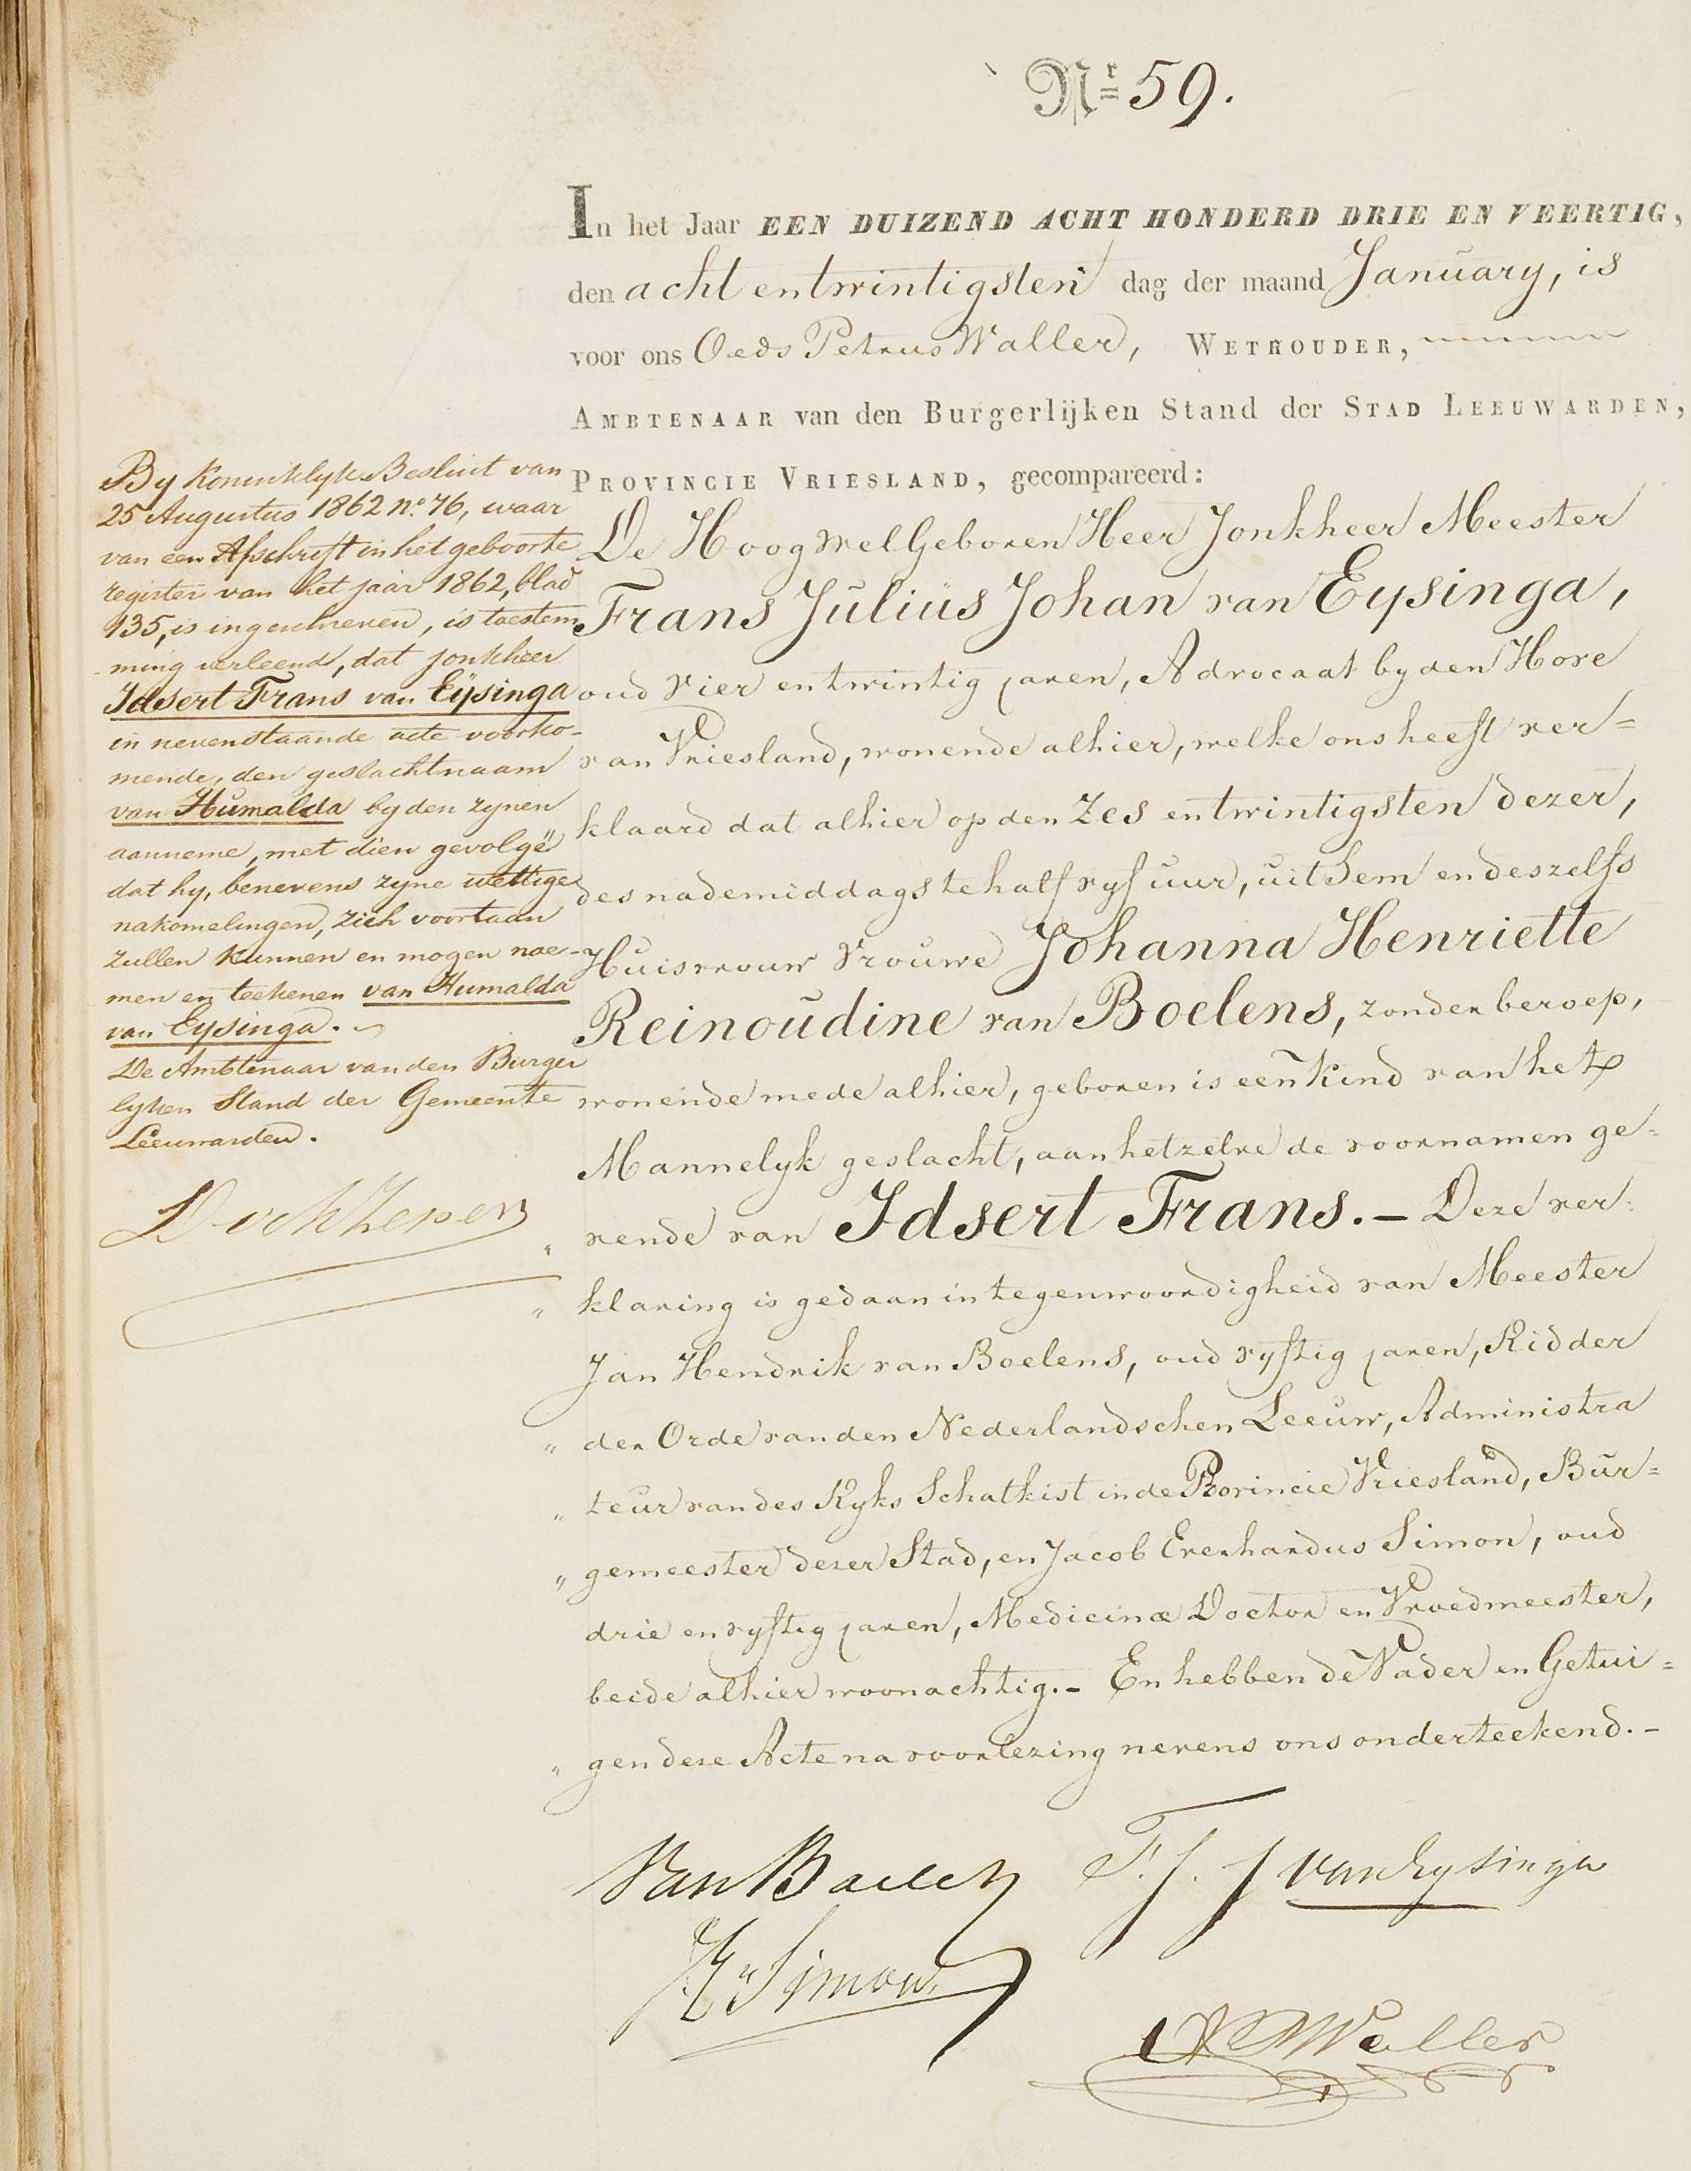 Nr 59.
In het Jaar EEN DUIZEND ACHT HONDERD DRIE EN VEERTIG,
den acht en twintigsten dag der maand January, is
voor ons Oeds Petrus Waller, WETHOUDER,
AMBTENAAR van den Burgerlijken Stand der STAD LEEUWARDEN,
PROVINCIE VRIESLAND, gecompareerd:
De HoogWelGeboren Heer Jonkheer Meester
Frans Julius Johan van Eysinga,
oud vier en twintig jaren, Advocaat by den Hove
van Vriesland, wonende alhier, welke ons heeft ver=
klaard dat alhier op den zes en twintigsten dezer,
des nademiddags te half vyf uur, uit hem en deszelfs
Huisvrouw Vrouwe Johanna Henriette
Reinoudine van Boelens, zonder beroep,
wonende mede alhier, geboren is een kind van het
Mannelyk geslacht, aan hetzelve de voornamen ge=
vende van Idsert Frans. — Deze ver=
klaring is gedaan in tegenwoordigheid van Meester
Jan Hendrik van Boelens, oud vyftig jaren, Ridder
der Orde van den Nederlandschen Leeuw, Administra
teur van des Ryks Schatkist in de Provincie Vriesland, Bur=
gemeester dezer Stad, en Jacob Everhardus Simon, oud
drie en vyftig jaren, Medicinæ Doctor en Vroedmeester,
beide alhier woonachtig. — En hebben de Vader en Getui=
gen deze Acte na voorlezing nevens ons onderteekend. —
By Koninklyk Besluit van
25 Augustus 1862 no. 76, waar
van een Afschrift in het geboorte
register van het jaar 1862, blad
135, is ingeschreven, is toestem
ming verleend, dat jonkheer
Idsert Frans van Eysinga
in nevenstaande acte voorko-
mende, den geslachtnaam
van Humalda by den zynen
aanneme, met dien gevolge
dat hy, benevens zyne wettige
nakomelingen, zich voortaan
zullen kunnen en mogen noe-
men en teekenen van Humalda
van Eysinga.
De Ambtenaar van den Burger
lyken Stand der Gemeente
Leeuwarden.
Van Boelens
F. J. J van Eysinga
Simon
Waller